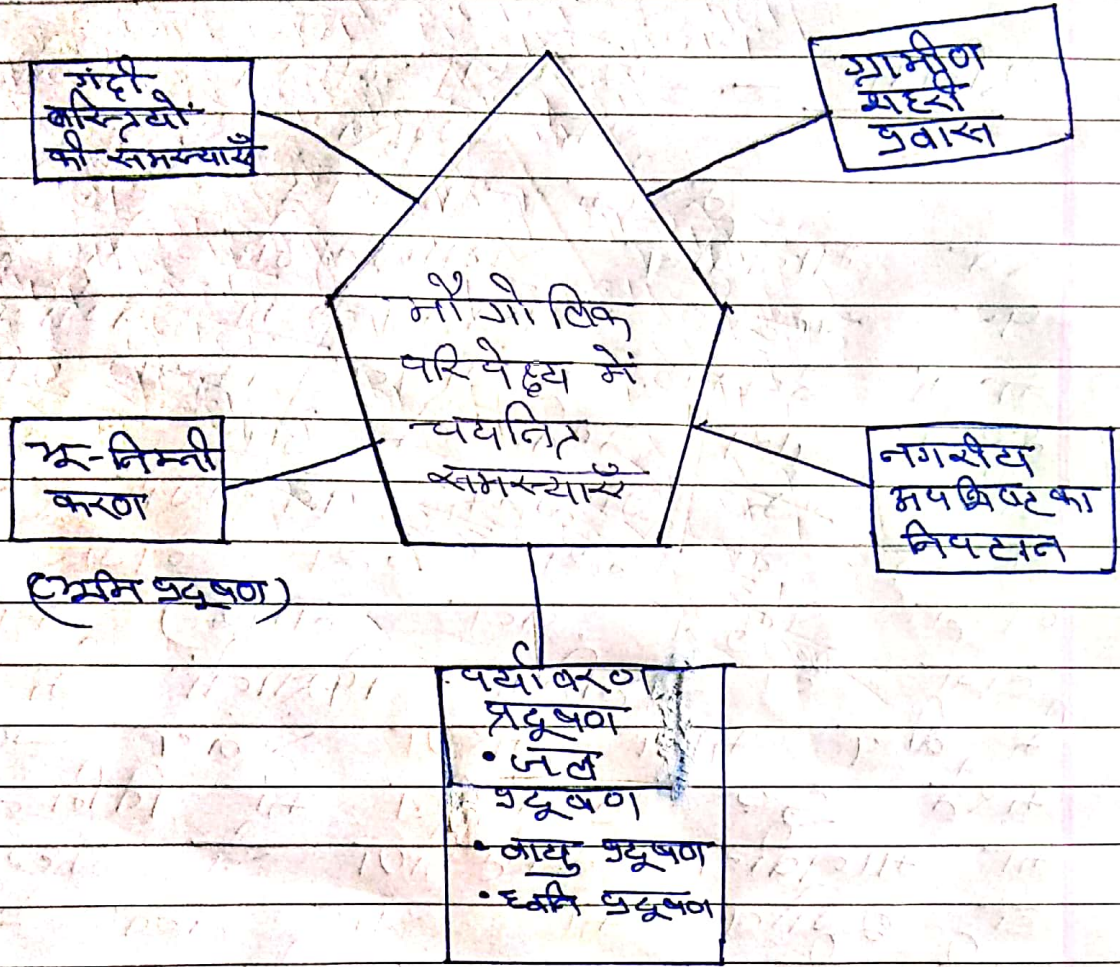 गंदी
बस्तियों
की समस्याएँ
ग्रामीण
शहरी
प्रवास
भौगोलिक
परिपेक्ष्य में
चयनित
समस्याएँ
भू-निम्नी
करण
(भूमि प्रदूषण)
नगरीय
अपशिष्ट का
निपटान
पर्यावरण
प्रदूषण
• जल
प्रदूषण
• वायु प्रदूषण
• ध्वनि प्रदूषण